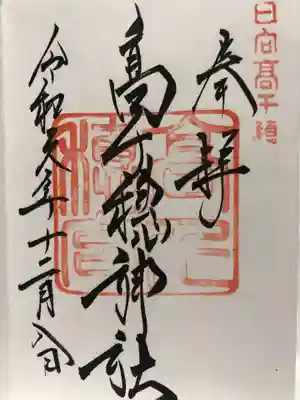 日向髙千穂
奉拝
高千穂神社
令和年十二月八日